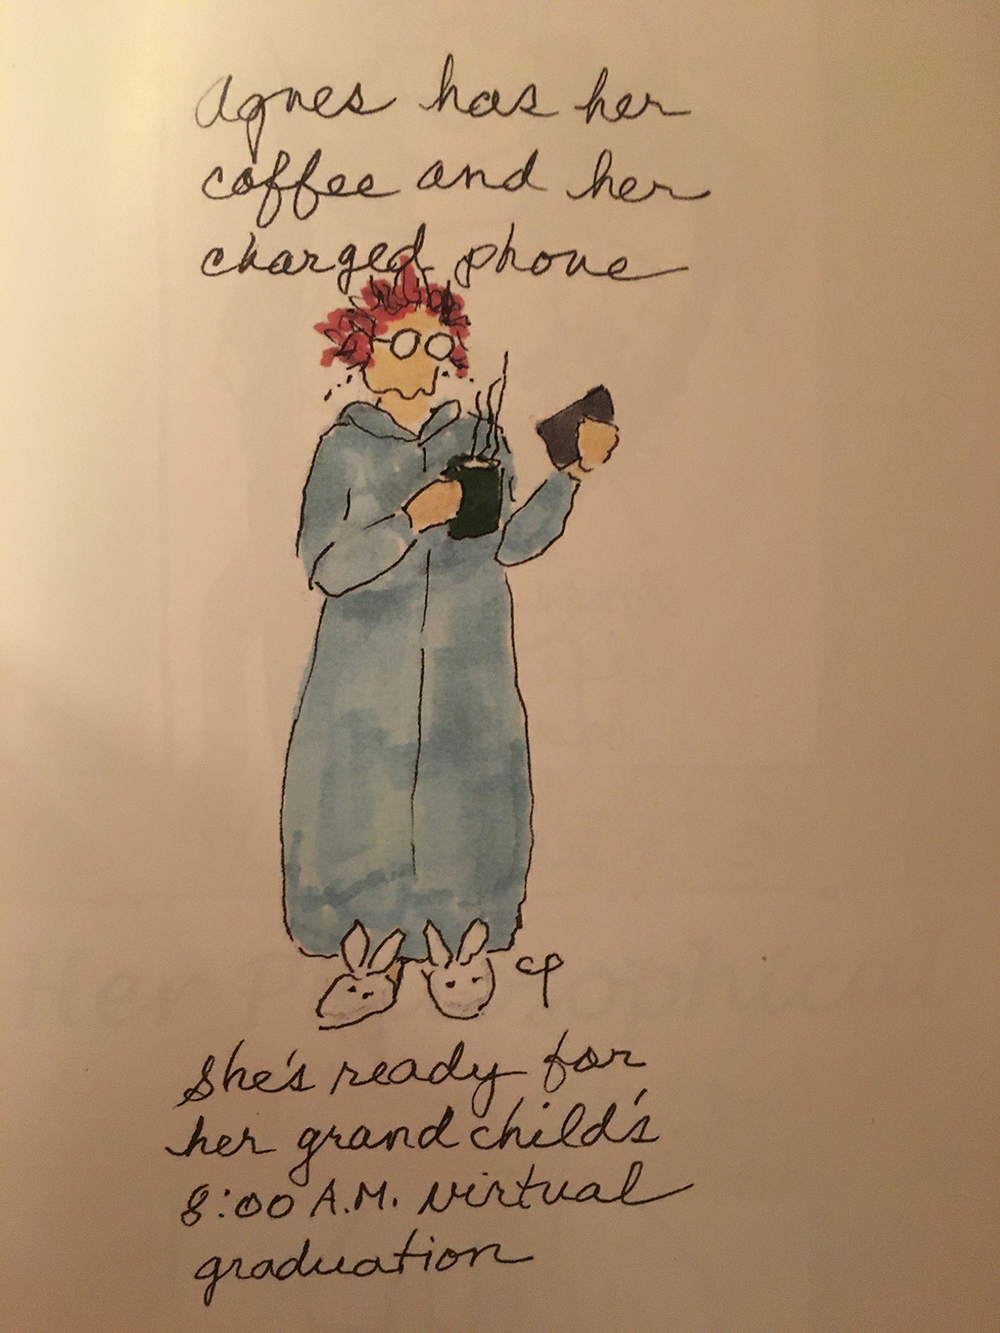 Agnes has her
coffee and her
charged phone
cp
She's ready for
her grand child's
8:00 A.M. virtual
graduation